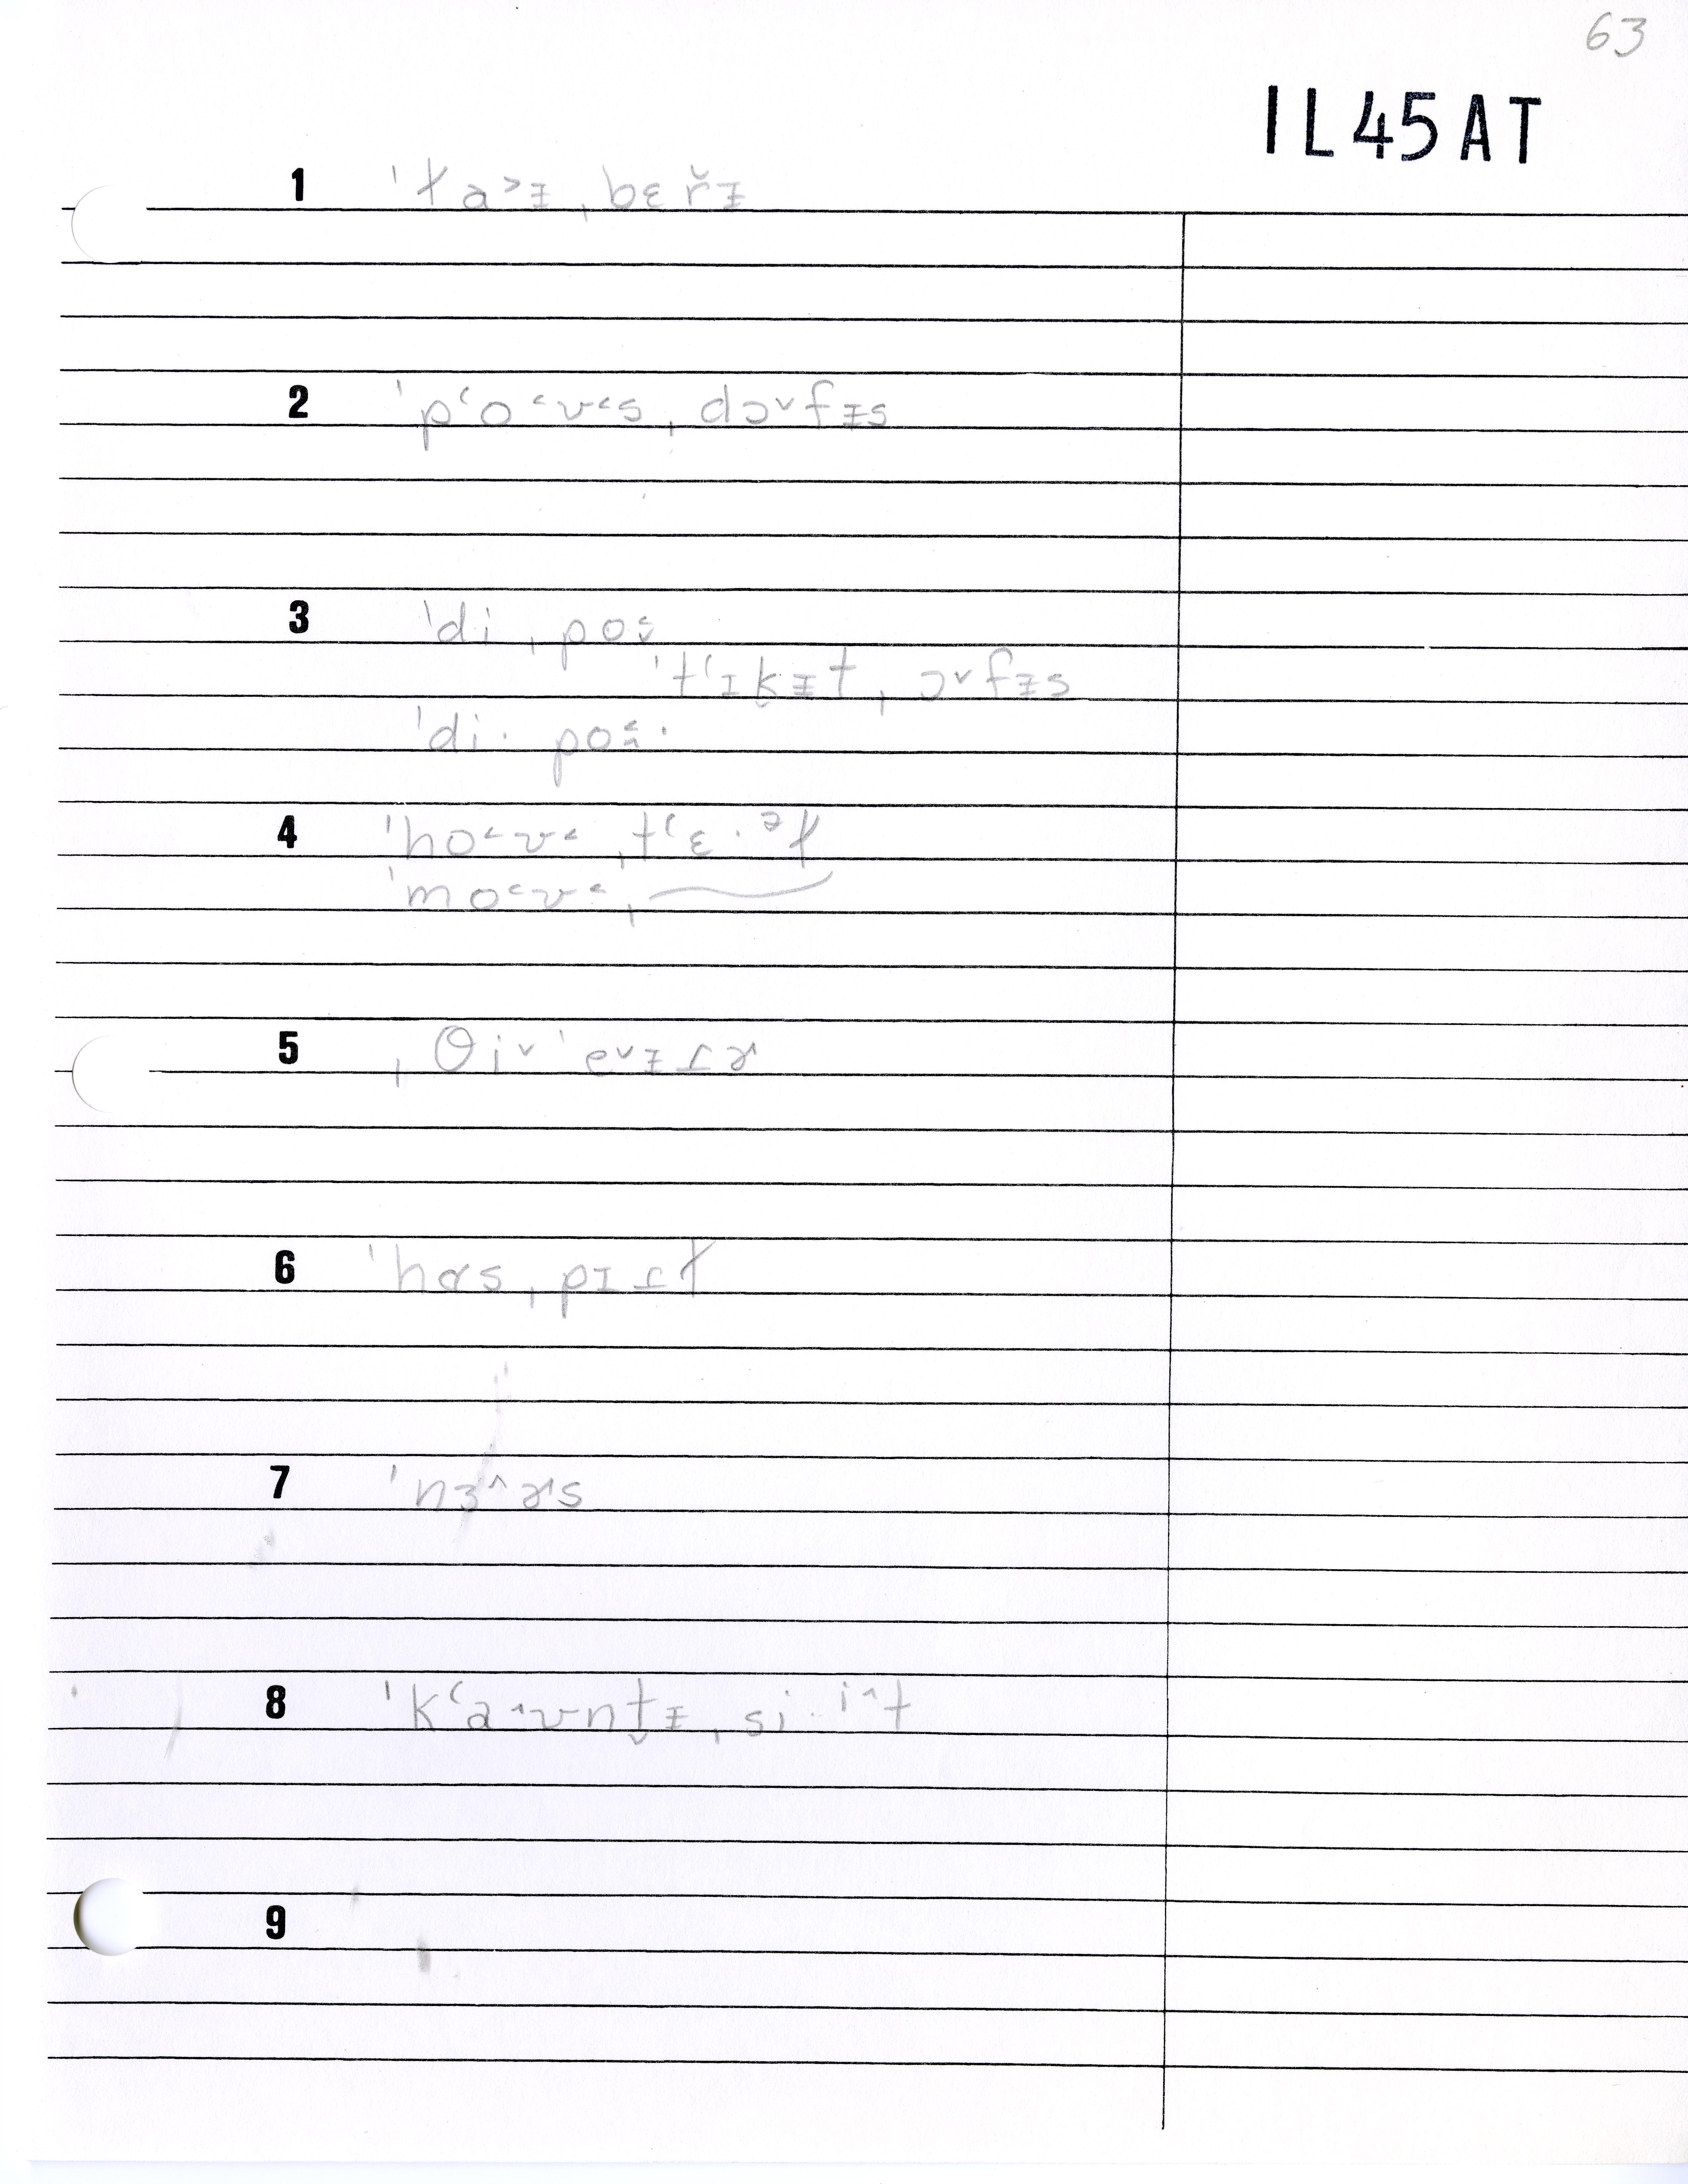 63
IL45AT
1 ˈɫa˃ᵻ ˌbɛr̆ᵻ
2 ˈpʻo˂ʊ˂s ˌdɔ˅fᵻs
3 ˈdi ˌpo
ˈtʻɪk̬ᵻt ˌɔ˅fᵻs
ˈdi· po
4 ˈho˂ʊ˂ ˌtʻɛ·ᵊɫ
ˈmo˂ʊ˂ ˌ
5 ˌθi˅ ˈe˅ᵻɾɚ
6 ˈhɑs ˌpɪɾɫ
7 ˈnɜ˄ɚs
8 ˈkʻa˄ʊnt̬ᵻ ˌsi·i˄t
9